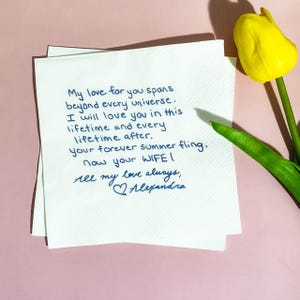 My love for you spans
beyond every universe.
I will love you in this
lifetime and every
lifetime after.
your forever summer fling,
now your WIFE!
All my love always,
♡ Alexandra